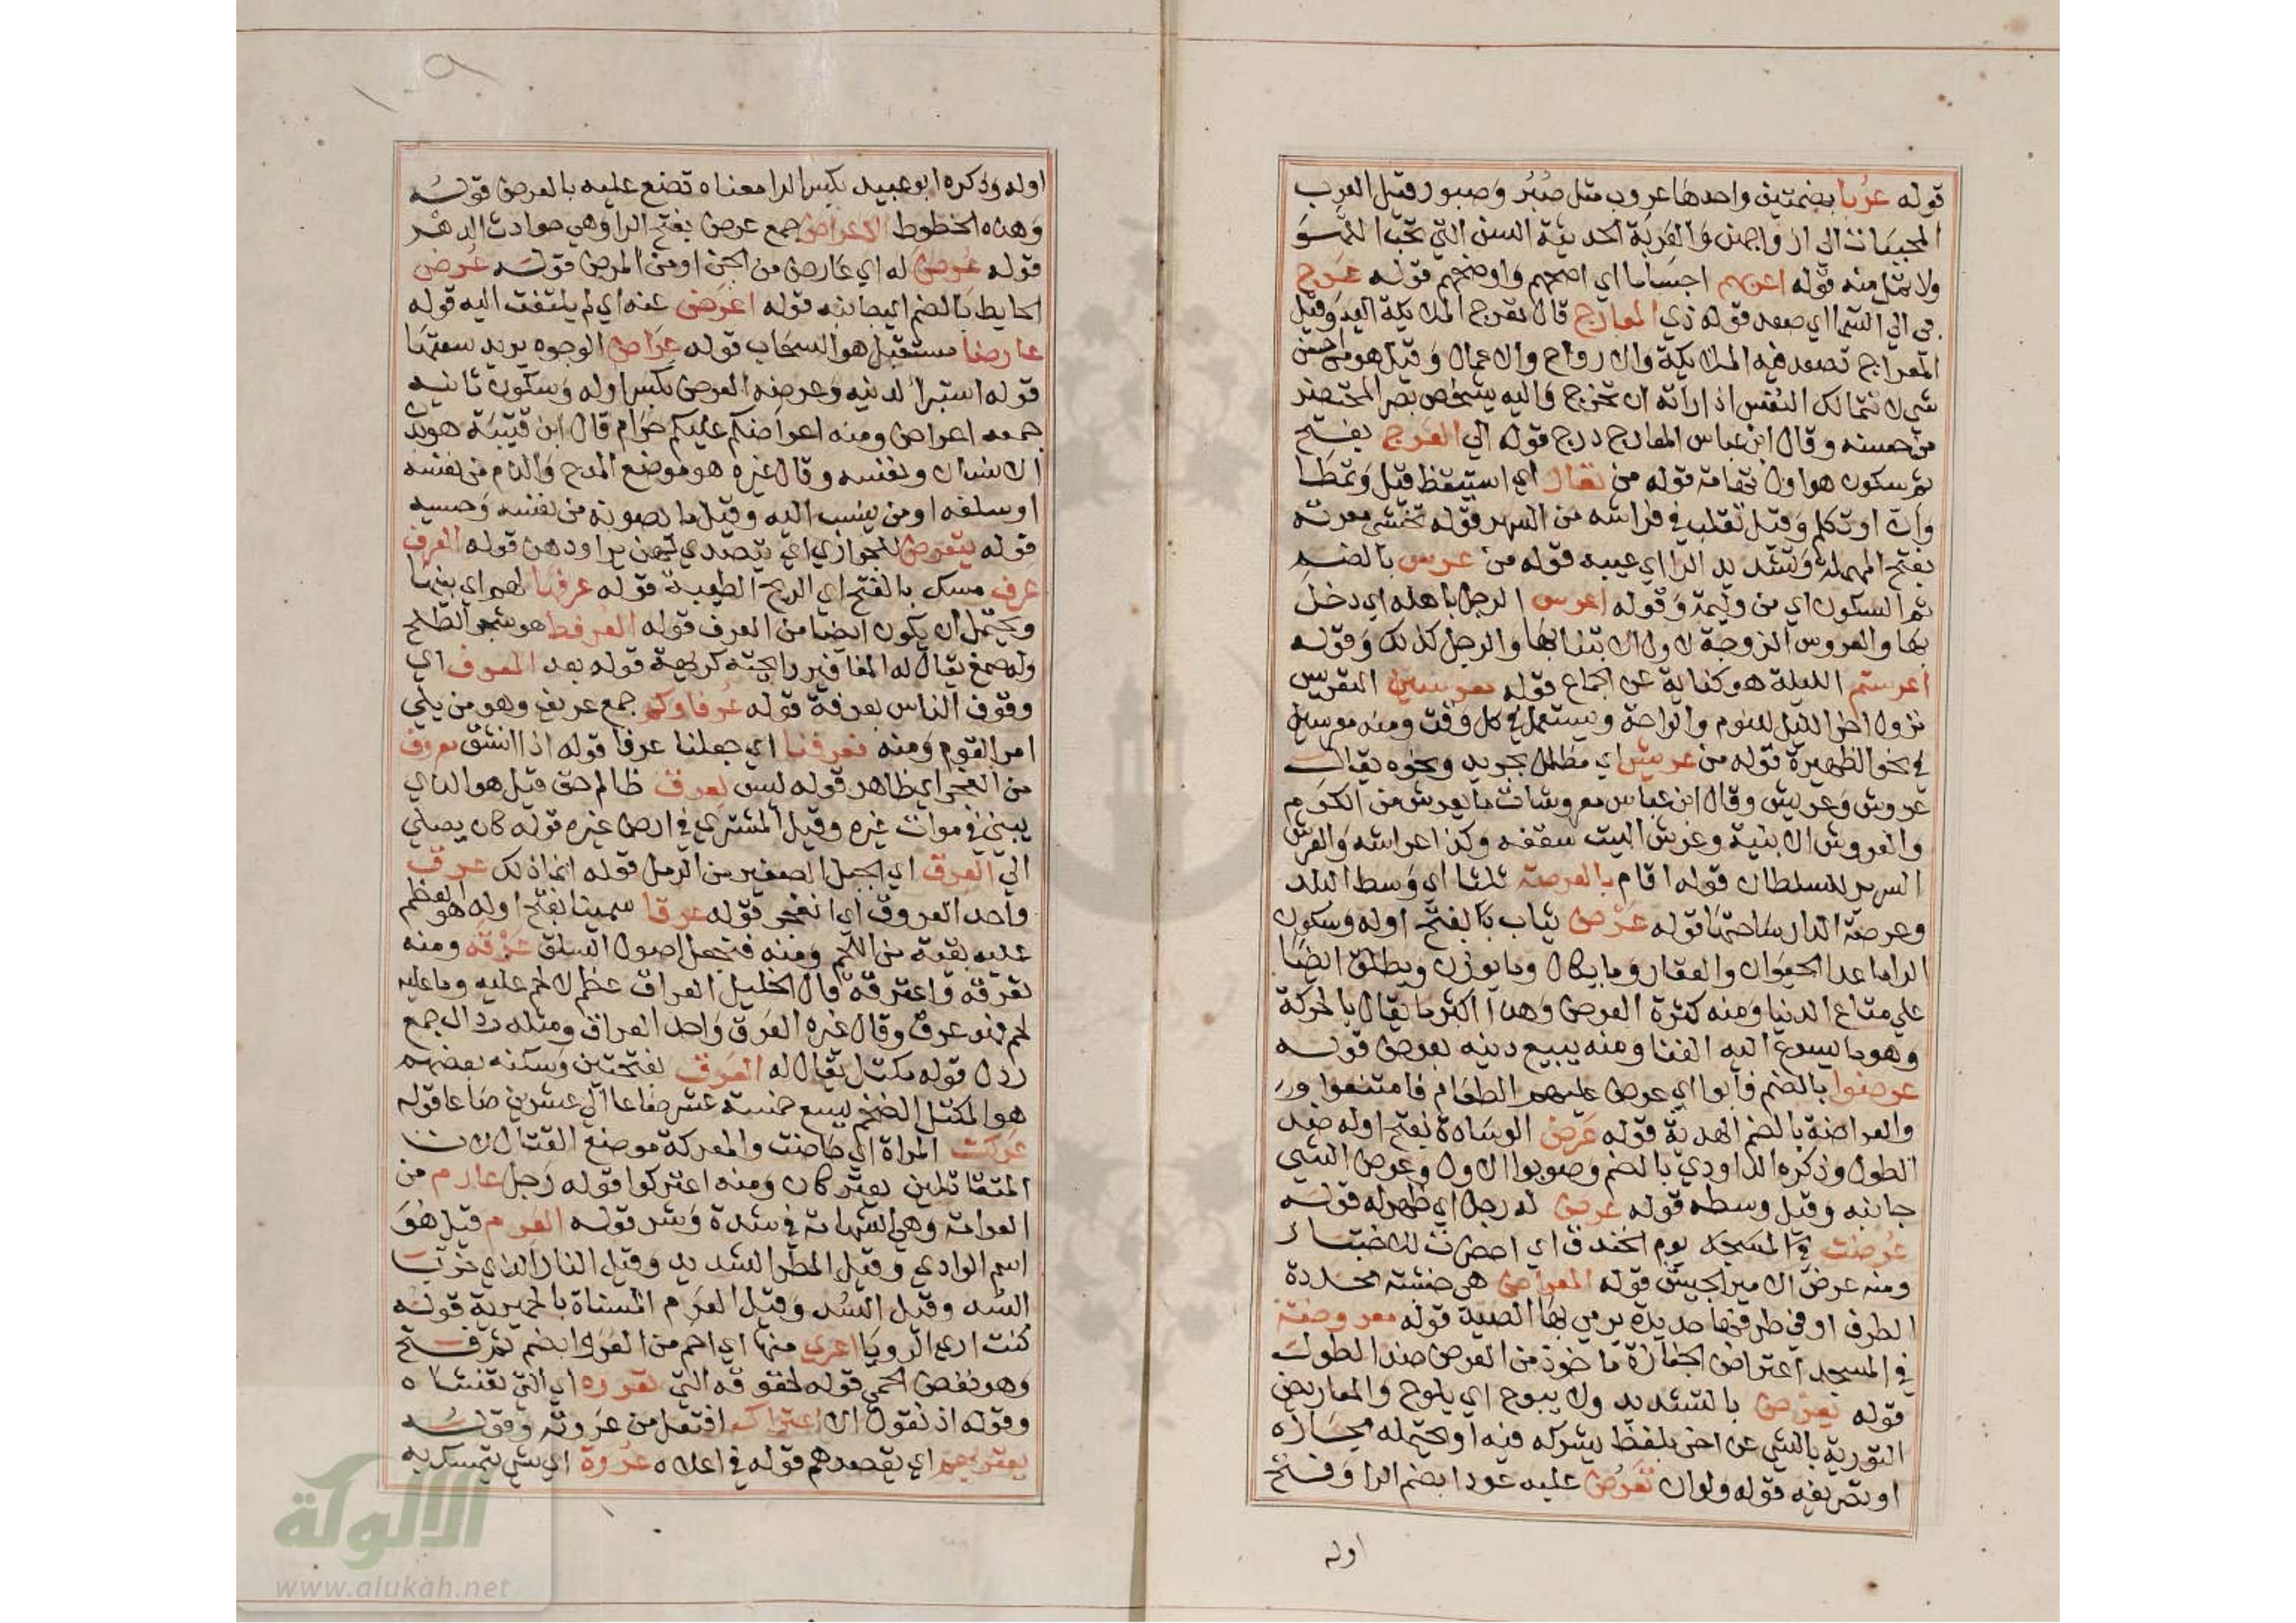 قوله عربا بضمتين واحدها عروب مثل صبر وصبور وقيل العرب
المحببات الى ازواجهن والعربة الحديثة السن التي تحب اللهو
ولا تمل منه قوله اعربهم احسابا اي اصحهم واوضحهم قوله عرج
بي الى السما اي صعد قوله ذي المعارج قال تعرج الملايكة اليه وقيل
المعراج تصعد فيه الملايكة والارواح والاعمال وقيل هو من احسن
شي لا تتمالك النفس اذا راته ان تخرج واليه يشخص بصر المحتضر
من حسنه وقال ابن عباس المعارج درج قوله الى العرج بفتح
ثم سكون هو اول تهامة قوله من تعار اي استيقظ قيل وتمطا
وان او تكلم وقيل تقلب في فراشه من السهر قوله تخشى معرته
بفتح المهملة وتشديد الرا اي عيبه قوله من عرس بالضم
ثم السكون اي من وليمة وقوله اعرس الرجل باهله اي دخل
بها والعروس الزوجة لاول الابتنا بها والرجل كذلك وقوله
اعرستم الليلة هو كناية عن الجماع قوله معرسين التعريس
نزول اخر الليل للنوم والراحة ويستعمل في كل وقت ومنه معرسين
في نحر الظهيرة قوله من عريش اي مظلل بجريد ونحوه يقال
عروش وعريش وقال ابن عباس معروشات ما يعرش من الكروم
والعروش الابنية وعرش البيت سقفه وكذا عراشه والعرش
السرير للسلطان قوله اقام بالعرصة ثلثا اي وسط البلد
وعرصة الدار ساحتها قوله عرض ثياب بالفتح اوله وسكون
الرا ما عدا الحيوان والعقار وما يكال وما يوزن ويطلق ايضا
على متاع الدنيا ومنه كثرة العرض وهذا اكثر ما يقال بالحركة
وهو ما يسرع اليه الفنا ومنه يبيع دينه بعرض قوله
عرضوا بالضم فابوا اي عرض عليهم الطعام فامتنعوا ورد
والعراضة بالضم الهدية قوله عرض الوسادة بفتح اوله ضد
الطول وذكره الداودي بالضم وصوبوا الاول وعرض الشي
جانبه وقيل وسطه قوله عرض له رجل اي ظهر له قوله
عرضت في المسجد يوم الخندق اي احضرت للاختبار
ومنه عرض الامير الجيش قوله المعراض هي خشبة محددة
الطرف او في طرفها حديدة يرمي بها الصيد قوله معروضة
في المسجد اعتراض الجنازة ماخوذ من العرض ضد الطول
قوله يعرض بالتشديد ولا يبوح اي يلوح والمعاريض
التورية بالشي عن اخر بلفظ يشركه فيه او يحتمله مجازه
او تصريفه قوله ولو ان تعرض عليه عودا بضم الرا وفتح
اوله
اوله وذكره ابو عبيد بكسر الرا معناه تضع عليه بالعرض قوله
وهذه الخطوط الاعراض جمع عرض بفتح الرا وهي حوادث الدهر
قوله عرض له اي عارض من الجن او من المرض قوله عرض
الحايط بالضم اي جانبه قوله اعرض عنه اي لم يلتفت اليه قوله
عارضا مستقبل هو السحاب قوله عراض الوجوه يريد سعتها
قوله استبرا لدينه وعرضه العرض بكسر اوله وسكون ثانيه
جمعه اعراض ومنه اعراضكم عليكم حرام قال ابن قتيبة هو بدن
الانسان ونفسه وقال غيره هو موضع المدح والذم من نفسه
او سلفه او من ينسب اليه وقيل ما يصونه من نفسه وحسبه
قوله يتعرض للجواري اي يتصدى لهن يراودهن قوله العرف
عرف مسك بالفتح اي الريح الطيبة قوله عرفها لهم اي بينها
ويحتمل ان يكون ايضا من العرف قوله العرفط هو شجر الطلح
وله صمغ يقال له المغافير رايحته كريهة قوله بعد المعرف اي
وقوف الناس بعرفة قوله عرفاوكم جمع عريف وهو من يلي
امر القوم ومنه فعرفنا اي جعلنا عرفا قوله اذا انشق معروف
من الفجر اي ظاهر قوله ليس لعرق ظالم حق قيل هو الذي
يبني في موات غيره وقيل المشتري في ارض غيره قوله كان يصلي
الى العرق اي الجبل الصغير من الرمل قوله انما ذلك عرق
واحد العروق اي انفجر قوله عرقا سمينا بفتح اوله هو العظم
عليه بقية من اللحم ومنه فتجعل اصول السلق عرقه ومنه
تعرقه واعترقه قال الخليل العراق عظم لا لحم عليه وما عليه
لحم فهو عرق وقال غيره العرق واحد العراق ومثله رذال جمع
رذل قوله مكتل يقال له العرق بفتحتين وسكنه بعضهم
هو المكتل الضخم يسع خمسة عشر صاعا الى عشرين صاعا قوله
عركت المراة اي حاضت والمعركة موضع القتال لان
المتقاتلين يعتركان ومنه اعتركوا قوله رجل عارم من
العرامة وهي الشهامة في شدة وشر قوله العرم قيل هو
اسم الوادي وقيل المطر الشديد وقيل الفار الذي خرب
السد وقيل السد وقيل العرم المسناة بالحميرية قوله
كنت ارى الرويا اعرى منها اي احم من العروا بضم ثم فتح
وهو نفض الحمى قوله لحقوقه التي تعروه اي التي تغشاه
وقوله اذ نقول الا اعتراك افتعل من عروته وقوله
يعتريهم اي يقصدهم قوله في اعلاه عروة اي شي يتمسك به
الألوكة
www.alukah.net